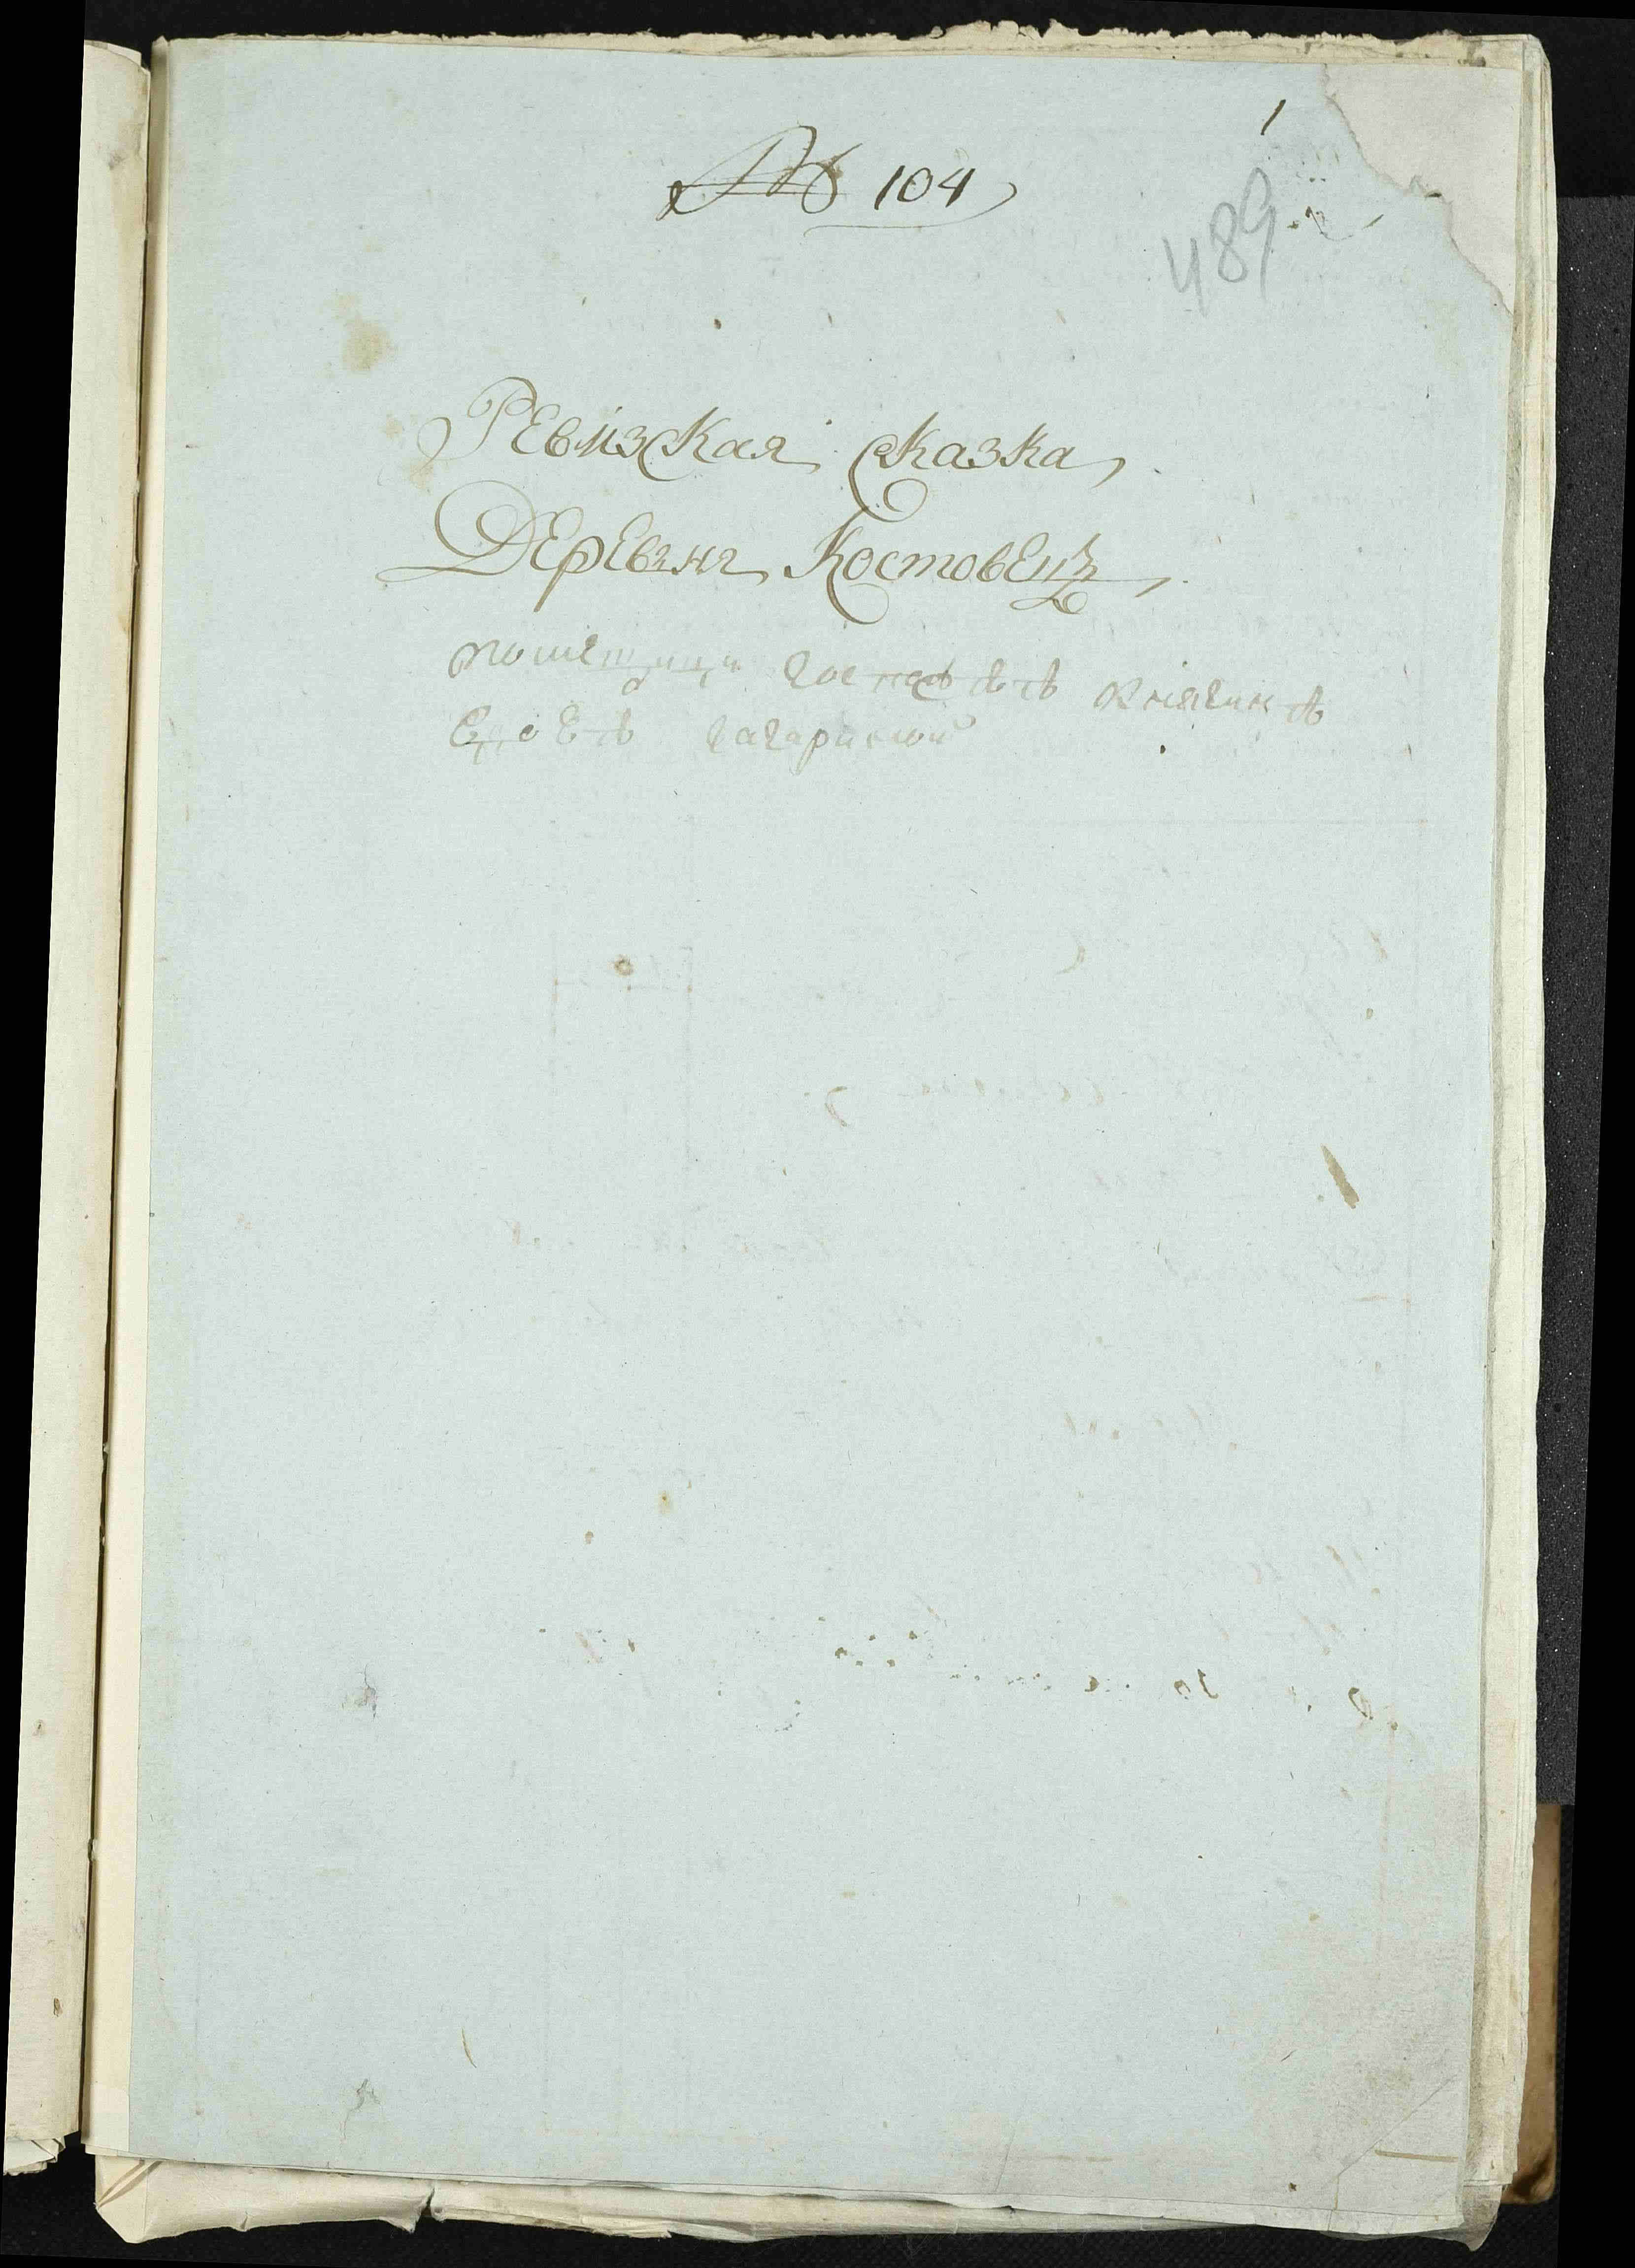 1
№ 104
489
Ревизская сказка
Деревни Костовецъ
помещици княгинѣ
гагариной